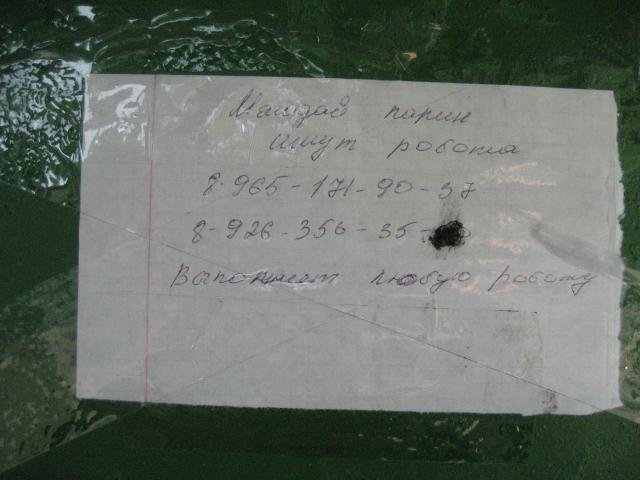 Маладой парин
ишут робота
8-965-171-90-37
8-926-356-35-
Выполнит любую роботу